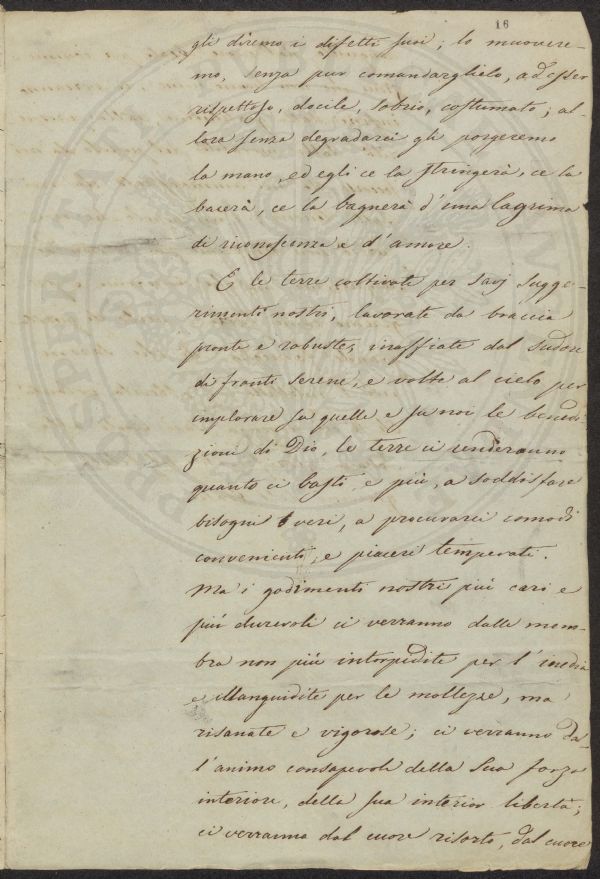 16
gli diremo i difetti suoi; lo muovere-
mo, senza pur comandarglielo, ad esser
rispettoso, docile, sobrio, costumato; al-
lora senza degradarci gli porgeremo
la mano, ed egli ce la stringerà, ce la
bacerà, ce la bagnerà d'una lagrima
di riconoscenza e d'amore.
E le terre coltivate per savj sugge-
rimenti nostri, lavorate da braccia
pronte e robuste, inaffiate dal sudore
di fronti serene, e volte al cielo per
implorare su quelle e su noi le benedi-
zioni di Dio, le terre ci renderanno
quanto ci basti, e più, a soddisfare
bisogni veri, a procurarci comodi
convenienti, e piaceri temperati.
Ma i godimenti nostri più cari e
più durevoli ci verranno dalle mem-
bra non più intorpidite per l'inedia
e illanguidite per le mollezze, ma
risanate e vigorose; ci verranno dal-
l'animo consapevole della sua forza
interiore, della sua interior libertà;
ci verranno dal cuore risorto, dal cuore
PROSPERITATI